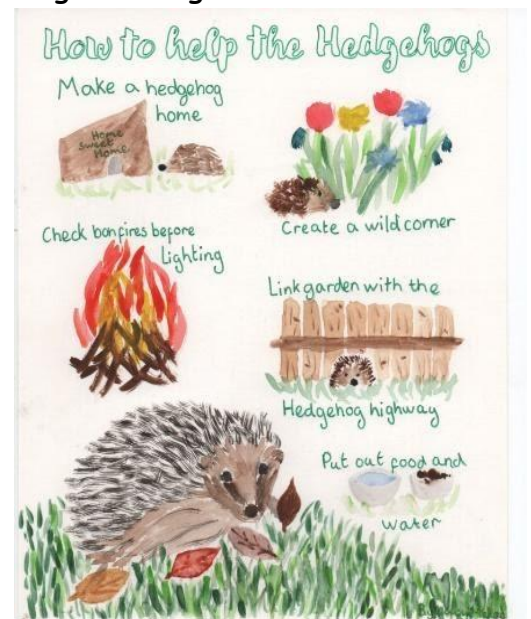 How to help the Hedgehogs
Make a hedgehog
home
Home
Sweet
Home
Create a wild corner
Check bonfires before
Lighting
Link garden with the
Hedgehog highway
Put out food and
water